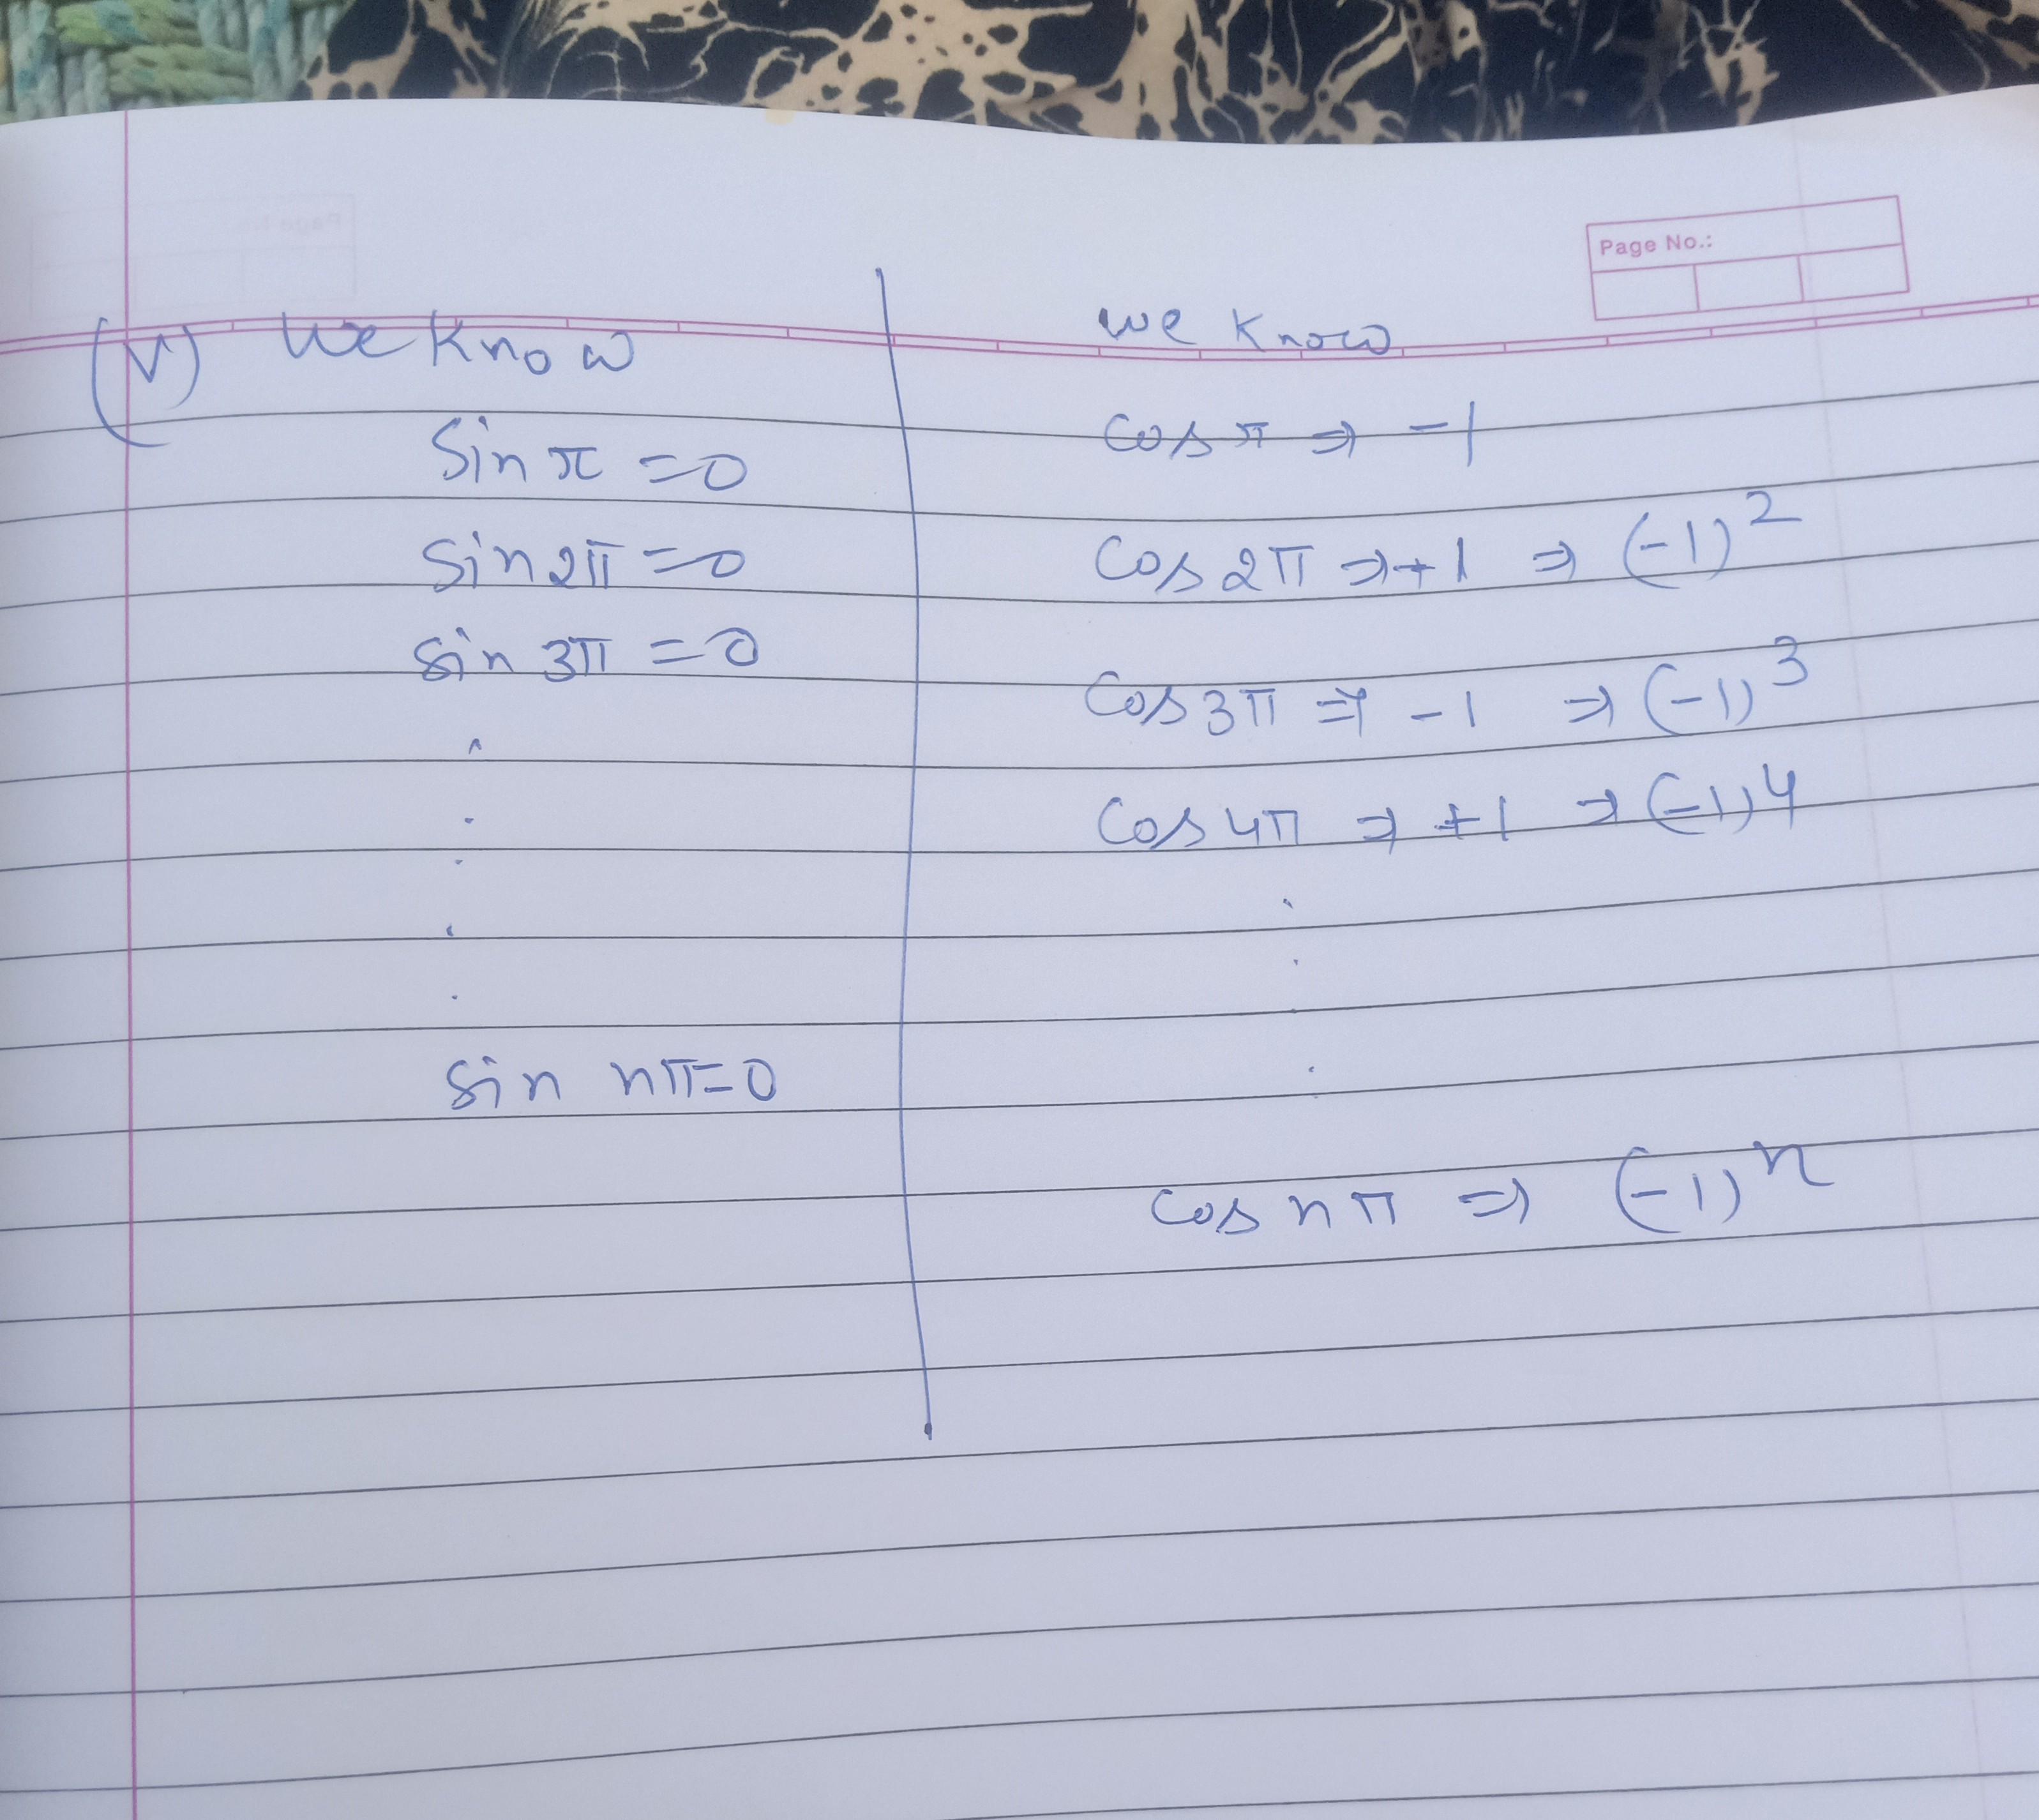 Page No.:
(V) We Know
Sin π = 0
Sin 2π = 0
Sin 3π = 0
.
.
.
.
.
Sin nπ = 0
we know
Cos π ⇒ -1
Cos 2π ⇒ +1 ⇒ (-1)²
Cos 3π ⇒ -1 ⇒ (-1)³
Cos 4π ⇒ +1 ⇒ (-1)⁴
.
.
.
.
Cos nπ ⇒ (-1)ⁿ